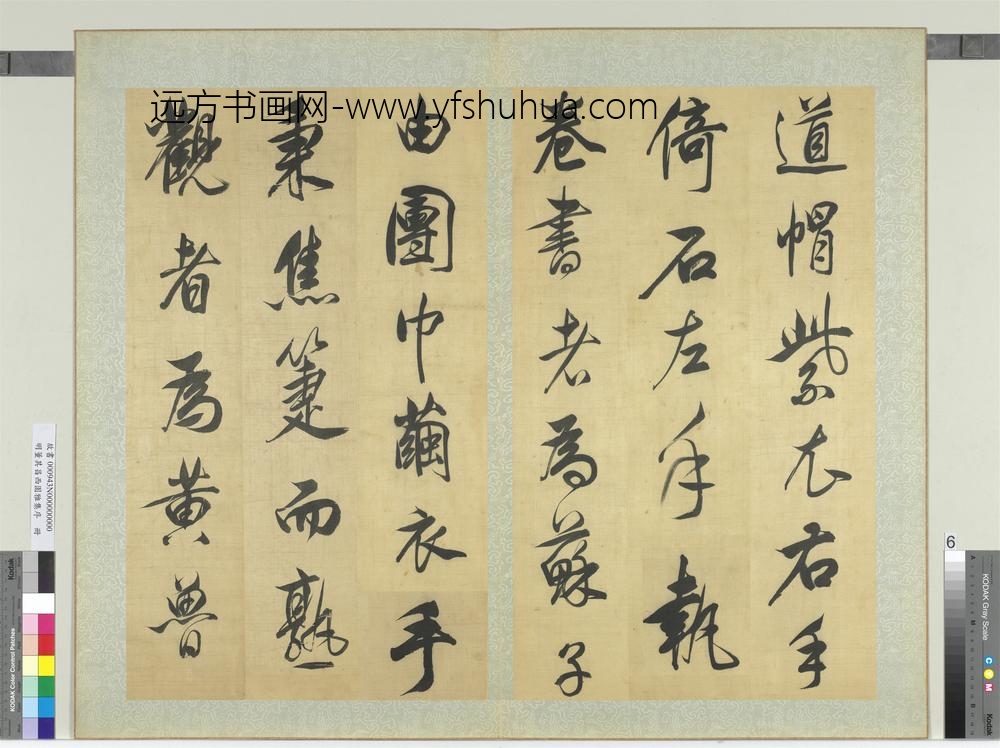 远方书画网-www.yfshuhua.com
道帽紫衣右手
倚石左手執
卷書者為蘇子
由團巾繭衣手
秉焦箑而熟
觀者為黃魯
故書 000943N000000000
明董其昌西園雅集序 冊
6
KODAK Gray Scale
C
Y
M
Kodak
Kodak
KODAK Color Control Patches